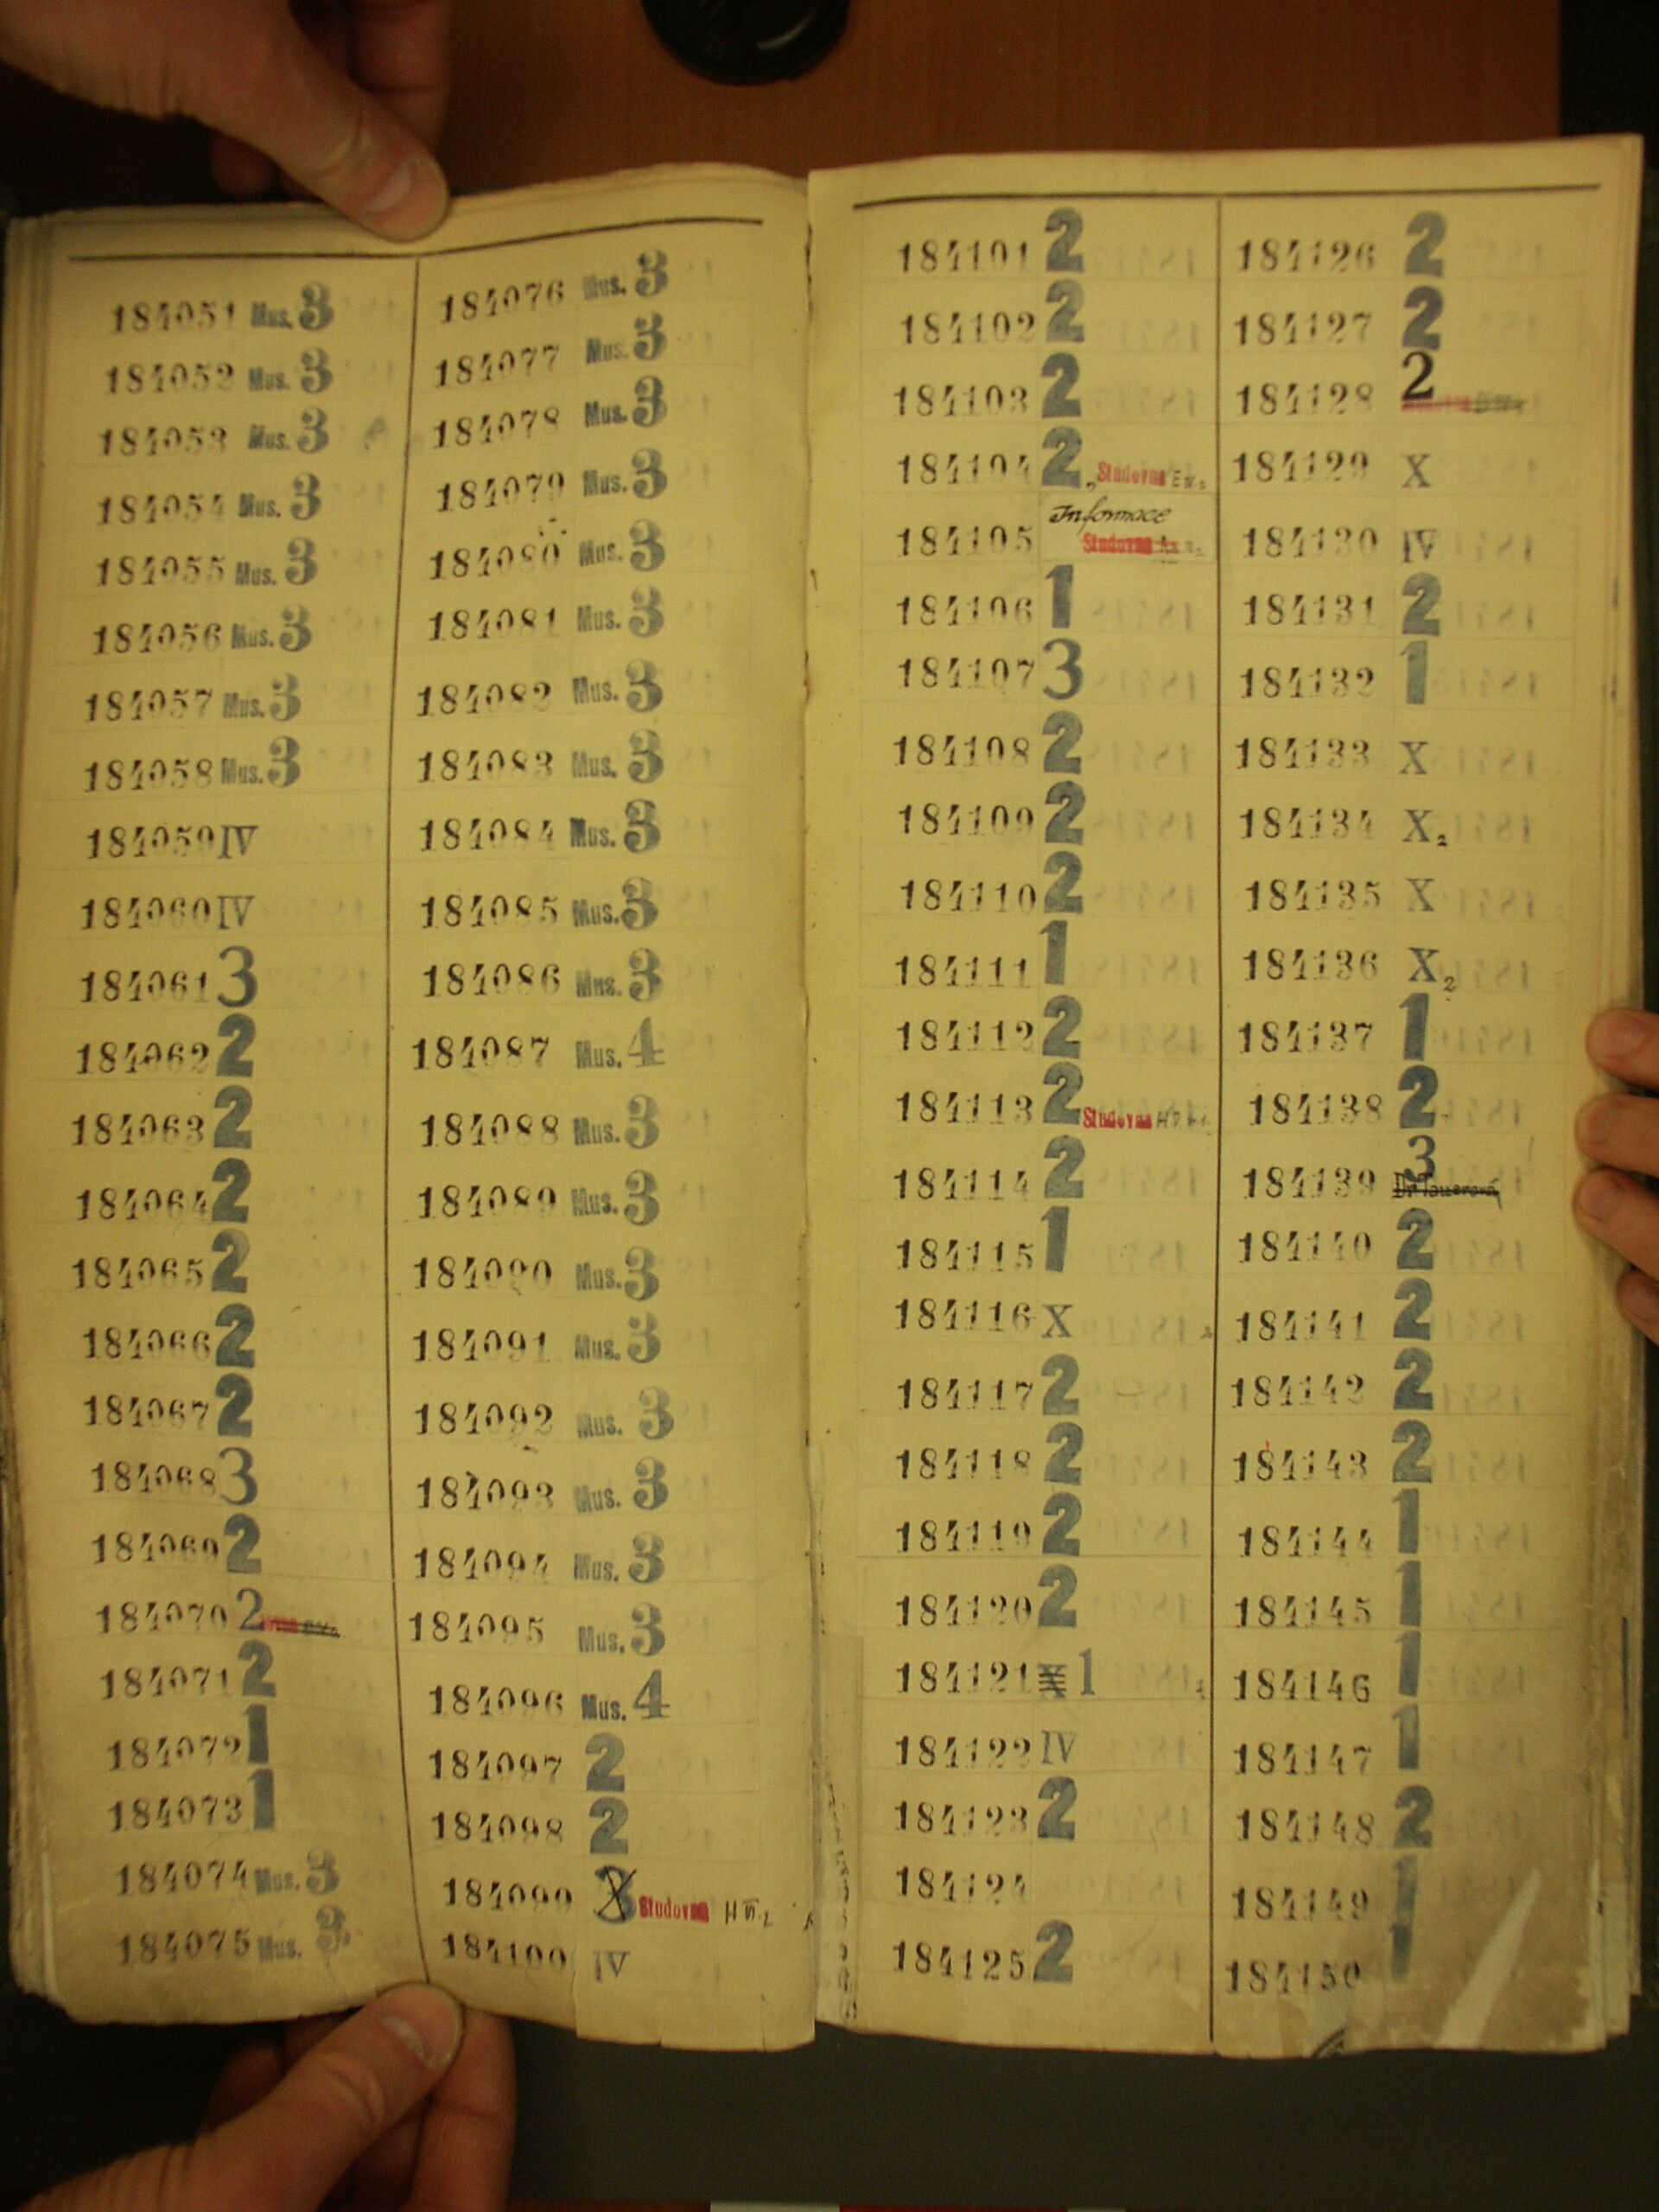 184051 Mus. 3
184052 Mus. 3
184053 Mus. 3
184054 Mus. 3
184055 Mus. 3
184056 Mus. 3
184057 Mus. 3
184058 Mus. 3
184059 IV
184060 IV
184061 3
184062 2
184063 2
184064 2
184065 2
184066 2
184067 2
184068 3
184069 2
184070 2
184071 2
184072 1
184073 1
184074 Mus. 3
184075 Mus. 3
184076 Mus. 3
184077 Mus. 3
184078 Mus. 3
184079 Mus. 3
184080 Mus. 3
184081 Mus. 3
184082 Mus. 3
184083 Mus. 3
184084 Mus. 3
184085 Mus. 3
184086 Mus. 3
184087 Mus. 4
184088 Mus. 3
184089 Mus. 3
184090 Mus. 3
184091 Mus. 3
184092 Mus. 3
184093 Mus. 3
184094 Mus. 3
184095 Mus. 3
184096 Mus. 4
184097 2
184098 2
184099 3 Studovna H VI
184100 IV
184101 2
184102 2
184103 2
184104 2 Studovna
184105 Informace
Studovna
184106 1
184107 3
184108 2
184109 2
184110 2
184111 1
184112 2
184113 2 Studovna
184114 2
184115 1
184116 X
184117 2
184118 2
184119 2
184120 2
184121 X 1
184122 IV
184123 2
184124
184125 2
184126 2
184127 2
184128 2
184129 X
184130 IV
184131 2
184132 1
184133 X
184134 X2
184135 X
184136 X2
184137 1
184138 2
184139 3
184140 2
184141 2
184142 2
184143 2
184144 1
184145 1
184146 1
184147 1
184148 2
184149 1
184150 1